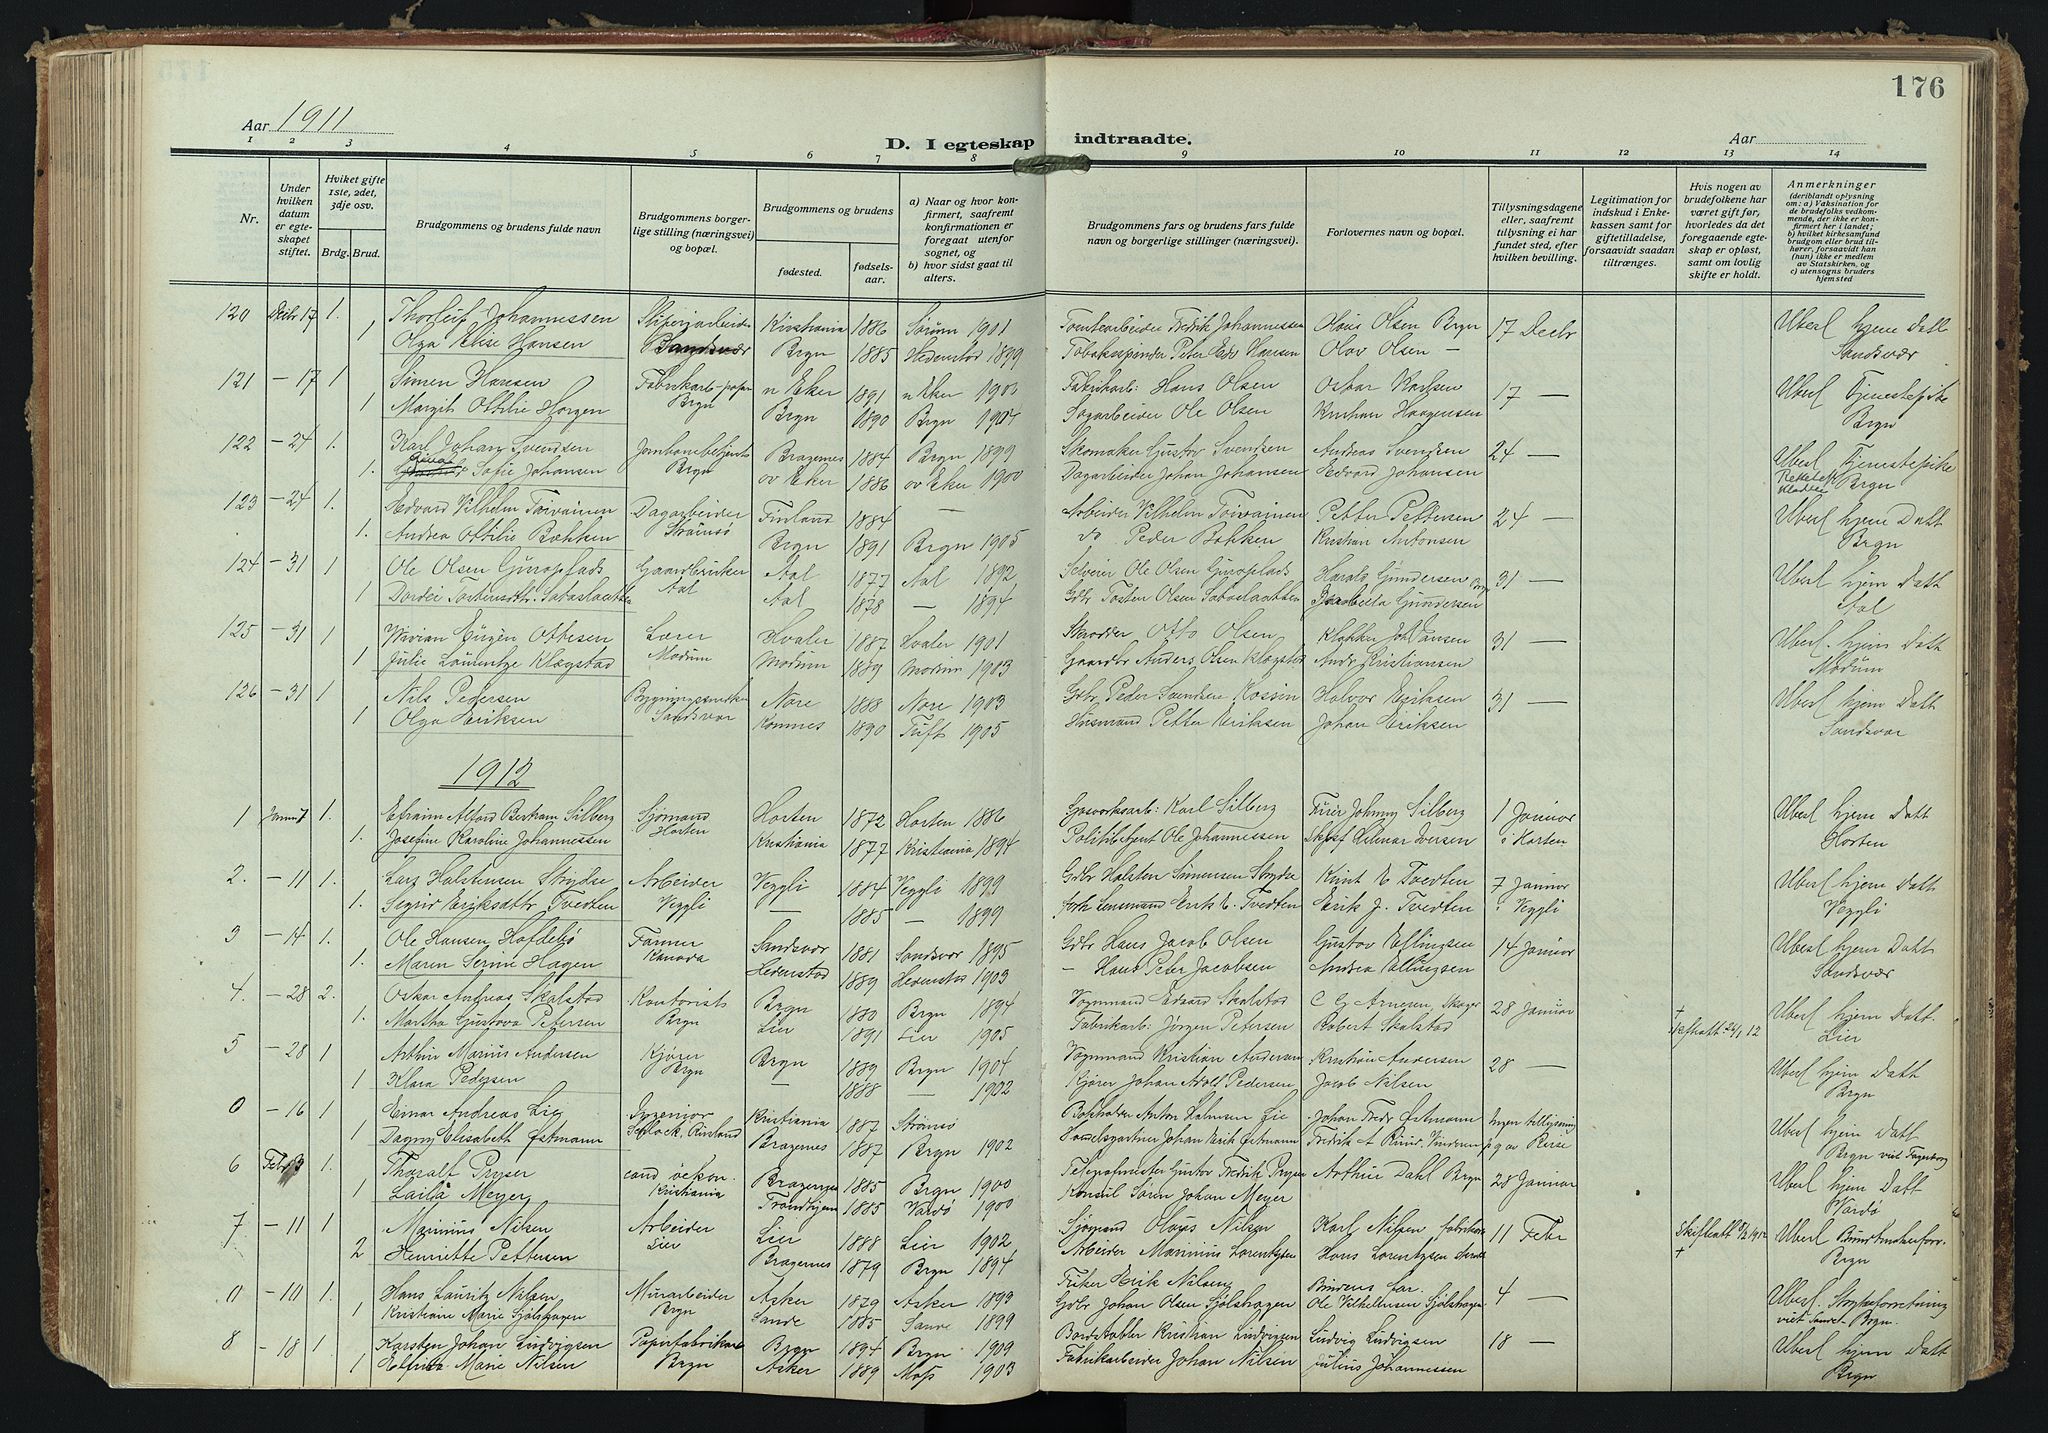 176
Aar 1911
D. I egteskap indtraadte.
Aar
1 2 3 4 5 6 7 8 9 10 11 12 13 14
Nr.
Under hvilken datum er egteskapet stiftet.
Hviket gifte 1ste, 2det, 3dje osv.
Brdg. Brud.
Brudgommens og brudens fulde navn
Brudgommens borgerlige stilling (næringsvei) og bopæl.
Brudgommens og brudens
fødested.
fødselsaar.
a) Naar og hvor konfirmert, saafremt konfirmationen er foregaat utenfor sognet, og
b) hvor sidst gaat til alters.
Brudgommens fars og brudens fars fulde navn og borgerlige stillinger (næringsvei).
Forlovernes navn og bopæl.
Tillysningsdagene eller, saafremt tillysning ei har fundet sted, efter hvilken bevilling.
Legitimation for indskud i Enkekassen samt for giftetilladelse, forsaavidt saadan tiltrænges.
Hvis nogen av brudefolkene har været gift før, hvorledes da det foregaaende egteskap er opløst, samt om lovlig skifte er holdt.
Anmerkninger (deriblandt oplysning om: a) Vaksination for de brudefolks vedkommende, der ikke er konfirmert her i landet; b) hvilket kirkesamfund brudgom eller brud tilhører, forsaavidt han (hun) ikke er medlem av Statskirken, og c) utensogns bruders hjemsted
120 Decbr 17 1. Thorleif Johannessen Sliperiarbeider Kristiania 1886 Sørum 1901 Tomtearbeider Fredrik Johannessen Hans Olsen Brgn 17 Decbr Uberl hjem Datt
1 Olga Elise Hansen Brgn 1885 Hedenstad 1899 Tobaksspinder Peter Edv Hansen Olav Olsen — Sandsvær
121 — 17 1 Simen Hansen Fabrikarb-papir n Eker 1891 n Eker 1903 Fabrikarb: Hans Olsen Oskar Karlsen 17 — Uberl Tjenestepike
1 Margit Ottilie Horgen Brgn Brgn 1890 Brgn 1904 Sagarbeider Ole Olsen Kristian Haagensen Brgn
122 — 24 1. Karl Johan Svendsen Jernbanebetjent Bragernes 1884 Brgn 1899 Skomaker Gustav Svendsen Andreas Svendsen 24 — Uberl Tjenestepike
1. Sofie Johansen Brgn ov Eker 1886 ov Eker 1900 Dagarbeider Johan Johansen Edvard Johansen Brgn
123 — 24 1. Edvard Vilhelm Toivainen Dagarbeider Finland 1884 — Arbeider Vilhelm Toivainen Petter Pettersen 24 — Uberl hjem Datt
1. Andrea Ottilie Bakken Strømsø Brgn 1891 Brgn 1905 do Peder Bakken Kristian Antonsen Brgn
124 — 31 1 Ole Olsen Guroplads Gaardbruker Aal 1877 Aal 1892 Selveier Ole Olsen Guroplads Harald Gundersen Brgn 31 — Uberl hjem Datt
1 Aal Aal 1878 — 1894 Gdbr Tosten Olsen Gundersen Aal
125 — 31 1 Ottesen Lærer Hvaler 1887 Hvaler 1901 Skrædder Otto Olsen Klokker Joh Jansen 31 — Uberl. hjem Datt
1 Julie Laurentze Klægstad Modum Modum 1889 Modum 1903 Gaardbr Anders Olsen Klægstad Andr Kristiansen Modum
126 — 31 1 Nils Pedersen Sandsvær Nore 1888 Nore 1903 Gdbr Peder Svendsen Kossin Halvor Eriksen 31 — Uberl hjem Datt
1 Olga Eriksen Komnes 1890 Tuft 1905 Husmand Petter Eriksen Johan Eriksen Sandsvær
1912
1 Januar 7 1. Efraim Alfred Bertram Silberg Sjømand Horten 1872 Horten 1886 Gasverksarb: Karl Silberg Furer Johnny Silberg 1 Januar Uberl hjem Datt
1. Josefine Karoline Johannessen Horten Kristiania 1877 Kristiania 1894 Politibetjent Ole Johannessen Hilmar Iversen i Horten Horten
2. — 11 1. Lars Halstensen Strydse Arbeider Veggli 1884 Veggli 1899 Gdbr Halsten Simensen Strydse Knut E Tvedten 7 Januar Uberl hjem Datt
1. Sigrid Eriksdttr Tvedten Veggli — 1885 — 1899 forh Lensmand Erik E. Tvedten Erik J. Tvedten i Veggli Veggli
3 — 14 1. Ole Hansen Hofdebø Farmer Sandsvær 1881 Sandsvær 1895 Gdbr Hans Jacob Olsen Gustav Ellingsen 14 Januar Uberl hjem Datt
1. Maren Serine Hagen Kanada Hedenstad 1889 Hedenstad 1903 — Hans Peter Jacobsen Andrea Ellingsen Sandsvær
4. — 28 2. Oskar Andreas Skalstad Kontorist Brgn 1880 Brgn 1894 Vognmand Edvard Skalstad C G Arnesen, Skoger 28 Januar † Uberl hjem Datt.
1. Martha Gustava Petersen Brgn Lier 1891 Lier 1905 Fabrikarb: Jørgen Petersen Robert Skalstad Skifteatt 24/1 12 Lier
5 — 28 1 Arthur Marius Andersen Kjører Brgn 1889 Brgn 1904 Vognmand Kristian Andersen Kristian Andersen 28 — Uberl hjem Datt
1 Klara Pedersen Brgn — 1888 — 1902 Kjører Johan Adolf Pedersen Jacob Nilsen Brgn
0 — 16 1 Einar Andreas Lie Ingeniør Kristiania 1887 Strømsø Bokholder Anton Lie Johan Fredr Østmann Ingen tillysning Uberl hjem Datt
1 Dagny Elisabeth Østmann Rusland Bragernes 1887 Brgn 1902 Handelsgartner Johan Erik Østmann p g av Reise Brgn viet Fagerborg
6 Febr 3 1. Thoralf Pryser cand oekon. Bragernes 1885 Brgn 1900 Telegrafmester Gustav Fredrik Pryser Arthur Dahl Brgn 28 Januar Uberl hjem Datt
1 Laila Meyer Kristiania Trondhjem 1885 Vardø 1900 Konsul Søren Johan Meyer Vardø
7 — 11 1 Marinius Nilsen Arbeider Lier 1888 Lier 1902 Sjømand Olaus Nilsen Karl Nilsen 11 Febr Skifteatt Uberl
2 Henriette Pettersen Lier Bragernes 1879 Brgn 1894 Arbeider Marinius Lorentzen Hans Lorentzen † Brgn
0 — 10 1. Hans Lauritz Nilsen Murarbeider Asker 1879 Asker 1893 Fisker Erik Nilsen Brudens far. 4 — Uberl Strykeforretning
1 Kristiane Marie Sjølshagen Brgn Sande 1885 Sande 1899 Gdbr Johan Olsen Sjølshagen Ole Vilhelmsen Sjølshagen viet Sande — Brgn.
8 — 18 1 Karsten Johan Ludvigsen Papirfabrikarb Brgn 1894 Brgn 1909 Bordstabler Kristian Ludvigsen Ludvig Ludvigsen 18 — Uberl hjem Datt
1 Marie Nilsen Brgn Asker 1889 Moss 1903 Fabrikarbeider Johan Nilsen Julius Johannessen Brgn